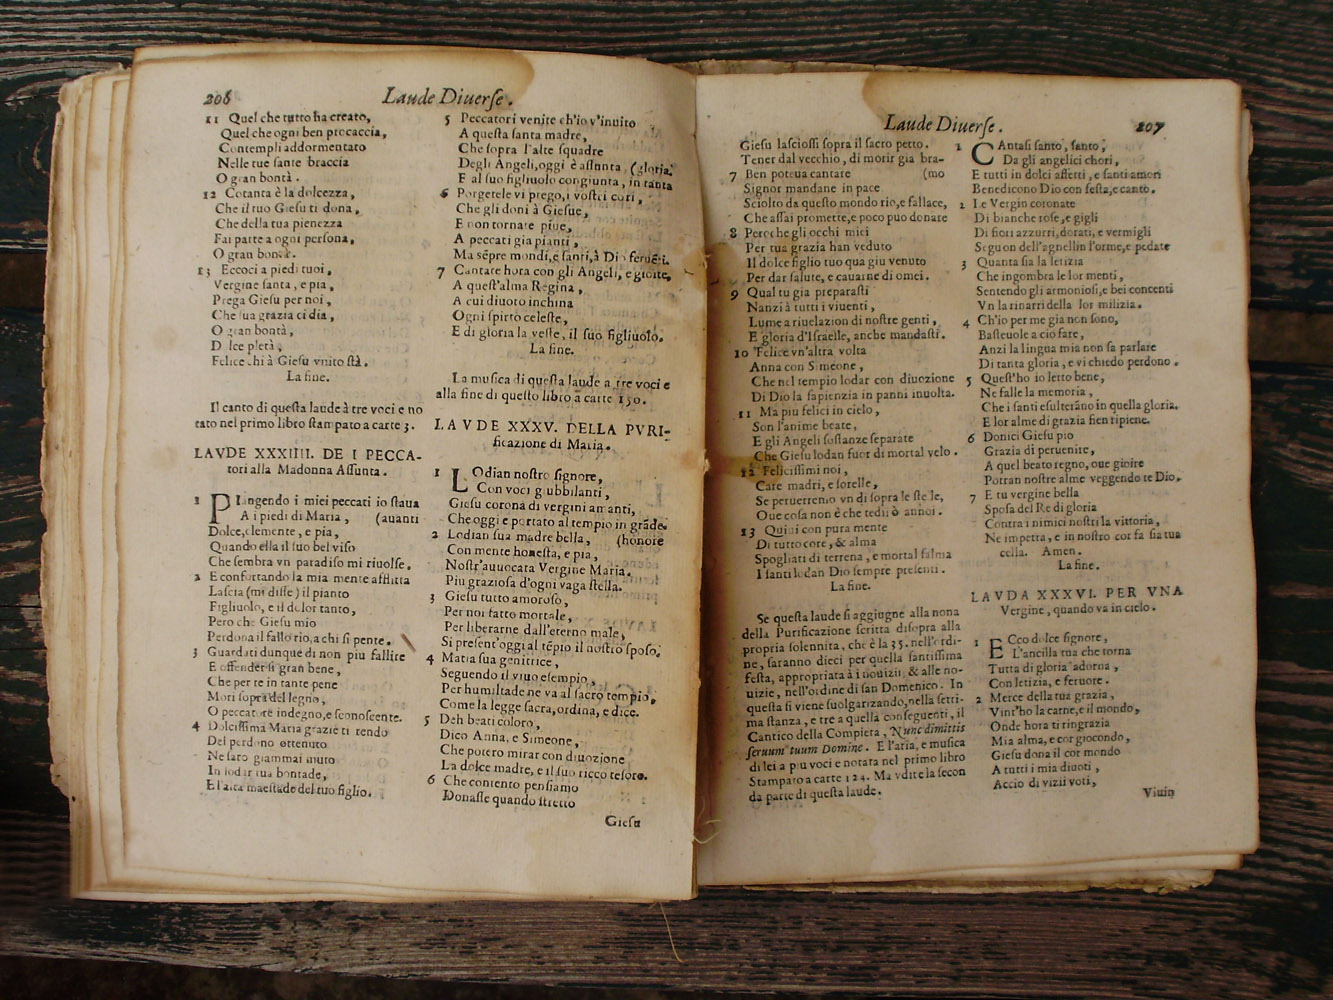 206
Laude Diuerſe.
11 Quel che tutto ha creato,
Quel che ogni ben procaccia,
Contempli addormentato
Nelle tue ſante braccia
O gran bontà.
12 Cotanta è la dolcezza,
Che il tuo Gieſu ti dona,
Che della tua pienezza
Fai parte a ogni perſona,
O gran bontà.
13 Eccoci a piedi tuoi,
Vergine ſanta, e pia,
Prega Gieſu per noi,
Che ſua grazia ci dia,
O gran bontà,
D lce pietà,
Felice chi à Gieſu vnito ſtà.
La fine.
Il canto di queſta laude à tre voci e no
tato nel primo libro ſtampato a carte 3.
LAVDE XXXIIII. DE I PECCA-
tori alla Madonna Aſſunta.
1 PIangendo i miei peccati io ſtaua
A i piedi di Maria, (auanti
Dolce, clemente, e pia,
Quando ella il ſuo bel viſo
Che ſembra vn paradiſo mi riuolſe.
2 E confortando la mia mente afflitta
Laſcia (mi diſſe) il pianto
Figliuolo, e il dolor tanto,
Pero che Gieſu mio
Perdona il fallo rio, a chi ſi pente.
3 Guardati dunque di non piu fallire
E offender ſi gran bene,
Che per te in tante pene
Mori ſopra del legno,
O peccatore indegno, e ſconoſcente.
4 Dolciſſima Maria grazie ti rendo
Del perdono ottenuto
Ne ſaro giammai muto
In lodar tua bontade,
E l'alta maeſtade del tuo figlio.
5 Peccatori venite ch'io v'inuito
A queſta ſanta madre,
Che ſopra l'alte ſquadre
Degli Angeli, oggi è aſſunta (gloria.
E al ſuo figliuolo congiunta, in tanta
6 Porgetele vi prego, i voſtri cori,
Che gli doni à Gieſue,
E non tornate piue,
A peccati gia pianti,
Ma sẽpre mondi, e ſanti, à Dio ſeruẽti.
7 Cantate hora con gli Angeli, e gioite,
A queſt'alma Regina,
A cui diuoto inchina
Ogni ſpirto celeſte,
E di gloria la veſte, il ſuo figliuolo.
La fine.
La muſica di queſta laude a tre voci e
alla fine di queſto libro a carte 150.
LAVDE XXXV. DELLA PVRI-
ficazione di Maria.
1 LOdian noſtro ſignore,
Con voci giubbilanti,
Gieſu corona di vergini amanti,
Che oggi e portato al tempio in grãde.
2 Lodian ſua madre bella, (honore
Con mente honeſta, e pia,
Noſtr'auuocata Vergine Maria.
Piu grazioſa d'ogni vaga ſtella.
3 Gieſu tutto amoroſo,
Per noi fatto mortale,
Per liberarne dall'eterno male,
Si preſent'oggi al tẽpio il noſtro ſpoſo.
4 Maria ſua genitrice,
Seguendo il viuo eſempio,
Per humiltade ne va al ſacro tempio,
Come la legge ſacra, ordina, e dice.
5 Deh beati coloro,
Dico Anna, e Simeone,
Che potero mirar con diuozione
La dolce madre, e il ſuo ricco teſoro.
6 Che contento penſiamo
Donaſſe quando ſtretto
Gieſu
Laude Diuerſe.
207
Gieſu laſcioſſi ſopra il ſacro petto.
Tener dal vecchio, di morir gia bra-
7 Ben poteua cantare (mo
Signor mandane in pace
Sciolto da queſto mondo rio, e fallace,
Che aſſai promette, e poco puo donare
8 Peroche gli occhi miei
Per tua grazia han veduto
Il dolce figlio tuo qua giu venuto
Per dar ſalute, e cauarne di omei.
9 Qual tu gia preparaſti
Nanzi à tutti i viuenti,
Lume a riuelazion di noſtre genti,
E gloria d'Iſraelle, anche mandaſti.
10 Felice vn'altra volta
Anna con Simeone,
Che nel tempio lodar con diuozione
Di Dio la ſapienza in panni inuolta.
11 Ma piu felici in cielo,
Son l'anime beate,
E gli Angeli ſoſtanze ſeparate
Che Gieſu lodan fuor di mortal velo.
12 Feliciſſimi noi,
Care madri, e ſorelle,
Se peruerremo vn di ſopra le ſtelle,
Oue coſa non è che tedii ò annoi.
13 Quiui con pura mente
Di tutto core, & alma
Spogliati di terrena, e mortal ſalma
I ſanti lodan Dio ſempre preſenti.
La fine.
Se queſta laude ſi aggiugne alla nona
della Purificazione ſcritta diſopra alla
propria ſolennita, che è la 35. nell'ordi-
ne, ſaranno dieci per quella ſantiſſima
feſta, appropriata à i nouizii, & alle no-
uizie, nell'ordine di ſan Domenico. In
queſta ſi viene ſuolgarizando, nella ſetti-
ma ſtanza, e tre a quella conſeguenti, il
Cantico della Compieta, Nunc dimittis
ſeruum tuum Domine. E l'aria, e muſica
di lei a piu voci e notata nel primo libro
Stampato a carte 124. Ma vdite la ſecon
da parte di queſta laude.
1 CAntaſi ſanto, ſanto,
Da gli angelici chori,
E tutti in dolci affetti, e ſanti amori
Benedicono Dio con feſta, e canto.
2 Le Vergin coronate
Di bianche roſe, e gigli
Di fiori azzurri, dorati, e vermigli
Seguon dell'agnellin l'orme, e pedate
3 Quanta ſia la letizia
Che ingombra le lor menti,
Sentendo gli armonioſi, e bei concenti
Vn la rinarri della lor milizia.
4 Ch'io per me gia non ſono,
Baſteuole a cio fare,
Anzi la lingua mia non ſa parlare
Di tanta gloria, e vi chiedo perdono.
5 Queſt'ho io letto bene,
Ne falle la memoria,
Che i ſanti eſulterãno in quella gloria.
E lor alme di grazia fien ripiene.
6 Donici Gieſu pio
Grazia di peruenire,
A quel beato regno, oue gioire
Potran noſtre alme veggendo te Dio.
7 E tu vergine bella
Spoſa del Re di gloria
Contra i nimici noſtri la vittoria,
Ne impetra, e in noſtro cor fa ſia tua
cella. Amen.
La fine.
LAVDA XXXVI. PER VNA
Vergine, quando va in cielo.
1 ECco dolce ſignore,
L'ancilla tua che torna
Tutta di gloria adorna,
Con letizia, e feruore.
2 Merce della tua grazia,
Vint'ho la carne, e il mondo,
Onde hora ti ringrazia
Mia alma, e cor giocondo,
Gieſu dona il cor mondo
A tutti i mia diuoti,
Accio di vizii voti,
Viuin